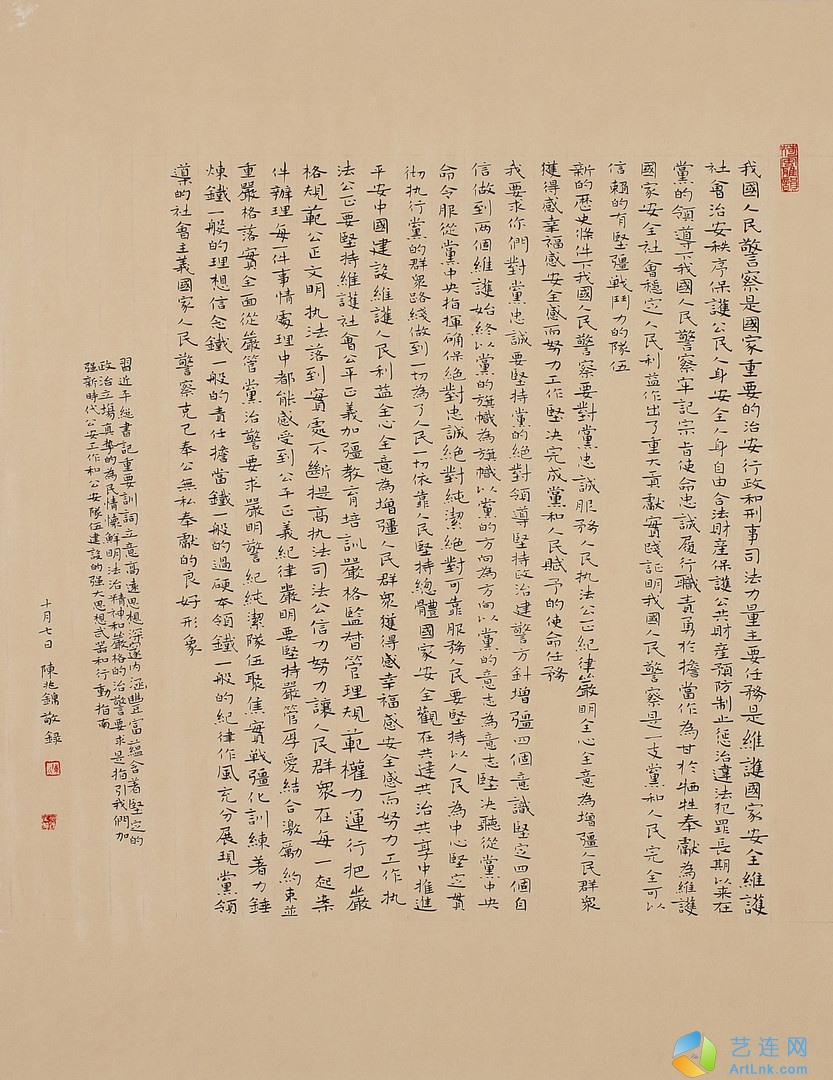 我國人民警察是國家重要的治安行政和刑事司法力量主要任務是維護國家安全維護
社會治安秩序保護公民人身安全人身自由合法財産保護公共財産預防制止懲治違法犯罪長期以來在
黨的領導下我國人民警察牢記宗旨使命忠誠履行職責勇於擔當作為甘於牺牲奉獻為維護
國家安全社會穩定人民利益作出了重大貢獻實踐証明我國人民警察是一支黨和人民完全可以
信賴的有堅彊戰鬥力的隊伍
新的歷史條件下我國人民警察要對黨忠誠服務人民执法公正紀律嚴明全心全意為增彊人民群衆
獲得感幸福感安全感而努力工作堅决完成黨和人民賦予的使命任務
我要求你們對黨忠誠要堅持黨的絕對領導堅持政治建警方針增彊四個意識堅定四個自
信做到兩個維護始終以黨的旗幟為旗幟以黨的方向為方向以黨的意志為意志堅决聽從黨中央
命令服從黨中央指揮确保絕對忠誠絕對純潔絕對可靠服務人民要堅持以人民為中心堅定貫
彻执行黨的群衆路綫做到一切為了人民一切依靠人民堅持總體國家安全觀在共建共治共享中推進
平安中國建設維護人民利益全心全意為增彊人民群衆獲得感幸福感安全感而努力工作执
法公正要堅持維護社會公平正義加彊教育培訓嚴格監督管理規範權力運行把嚴
格規範公正文明执法落到實處不斷提高执法司法公信力努力讓人民群衆在每一起案
件辦理每一件事情處理中都能感受到公平正義紀律嚴明要堅持嚴管厚愛結合激勵約束並
重嚴格落實全面從嚴管黨治警要求嚴明警紀純潔隊伍聚焦實戰彊化訓練着力錘
煉鐵一般的理想信念鐵一般的責任擔當鐵一般的過硬本領鐵一般的紀律作風充分展現黨領
導的社會主義國家人民警察克己奉公無私奉獻的良好形象
習近平總書記重要訓詞立意高遠思想深邃内涵豐富蘊含着堅定的
政治立場真摯的為民情懷鮮明法治精神和嚴格的治警要求是指引我們加
强新時代公安工作和公安隊伍建設的强大思想武器和行動指南
十月七日 陳兆錦敬録
艺连网
ArtLnk.com